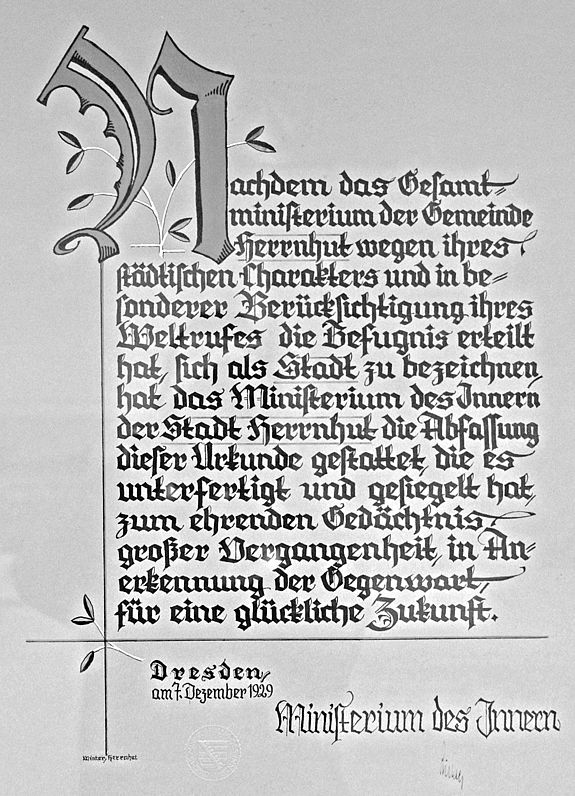 Nachdem das Gesamt-
ministerium der Gemeinde
Herrnhut wegen ihres
städtischen Charakters und in be-
sonderer Berücksichtigung ihres
Weltrufes die Befugnis erteilt
hat, sich als Stadt zu bezeichnen,
hat das Ministerium des Innern
der Stadt Herrnhut die Abfassung
dieser Urkunde gestattet, die es
unterfertigt und gesiegelt hat,
zum ehrenden Gedächtnis
großer Vergangenheit, in An-
erkennung der Gegenwart,
für eine glückliche Zukunft.
Dresden,
am 7. Dezember 1929
Ministerium des Innern
Winter, Herrnhut